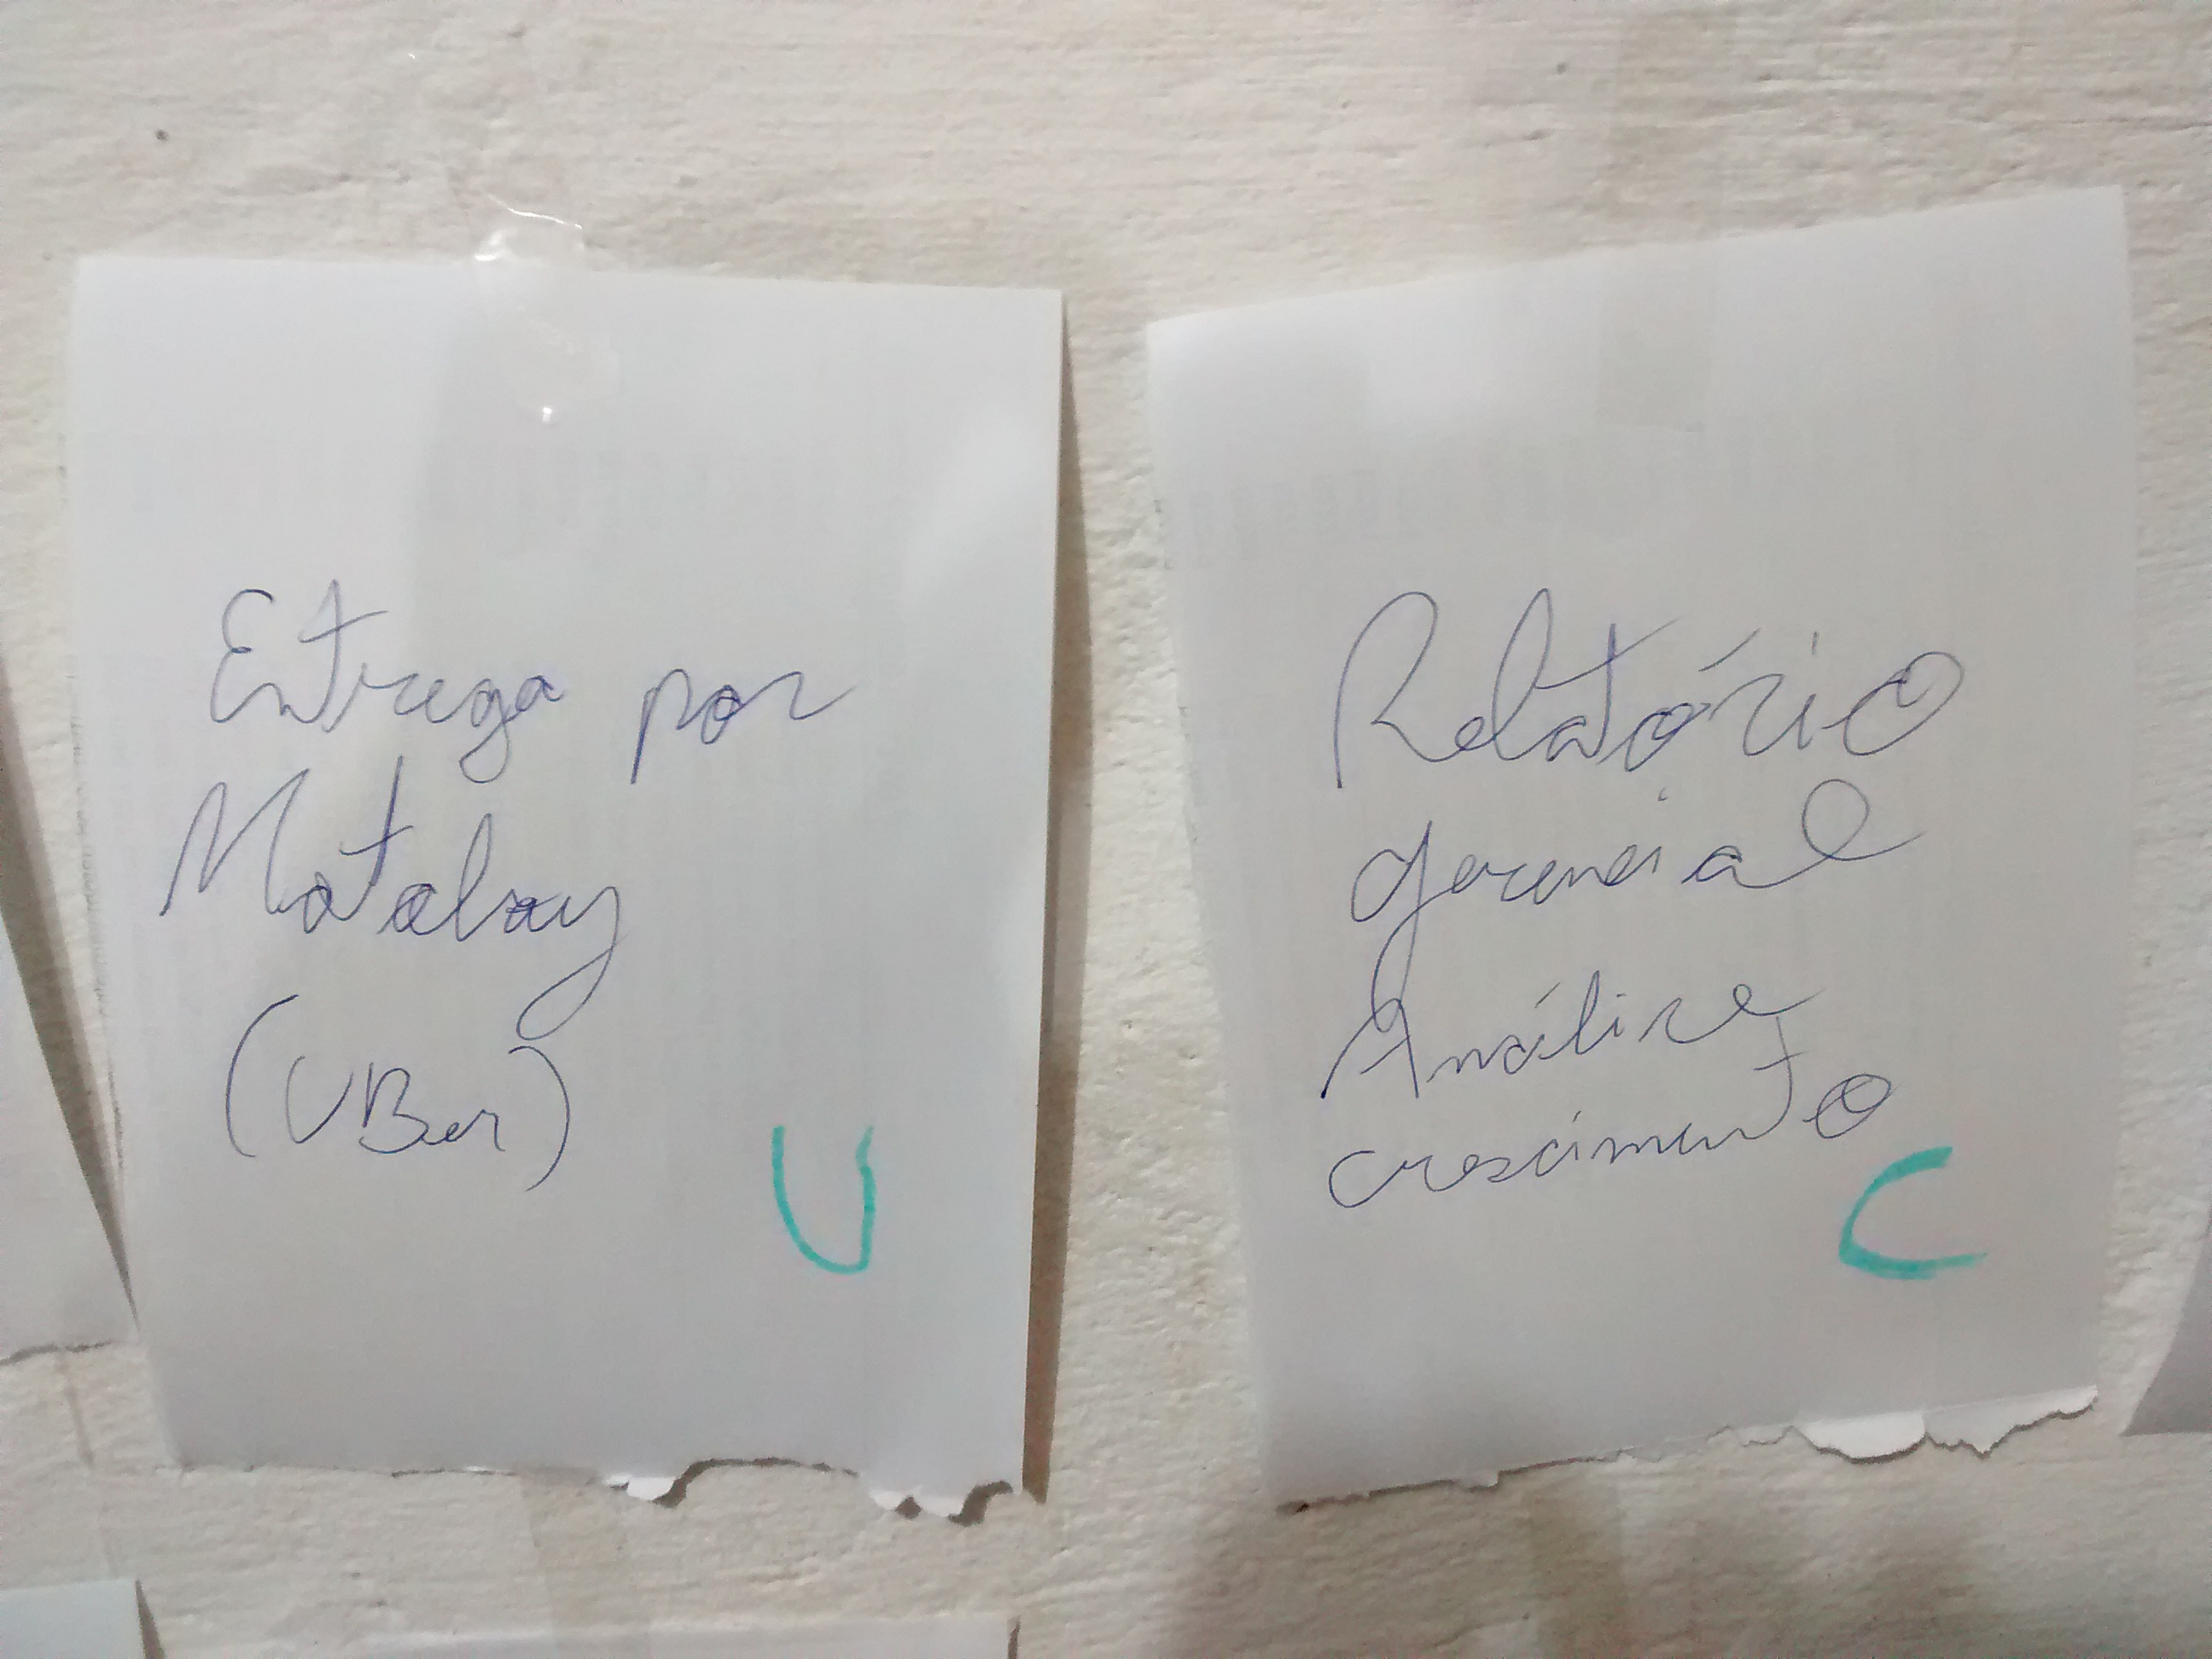 Entrega por
Motoboy
(UBer)
U
Relatório
gerencial
Análise
crescimento
C